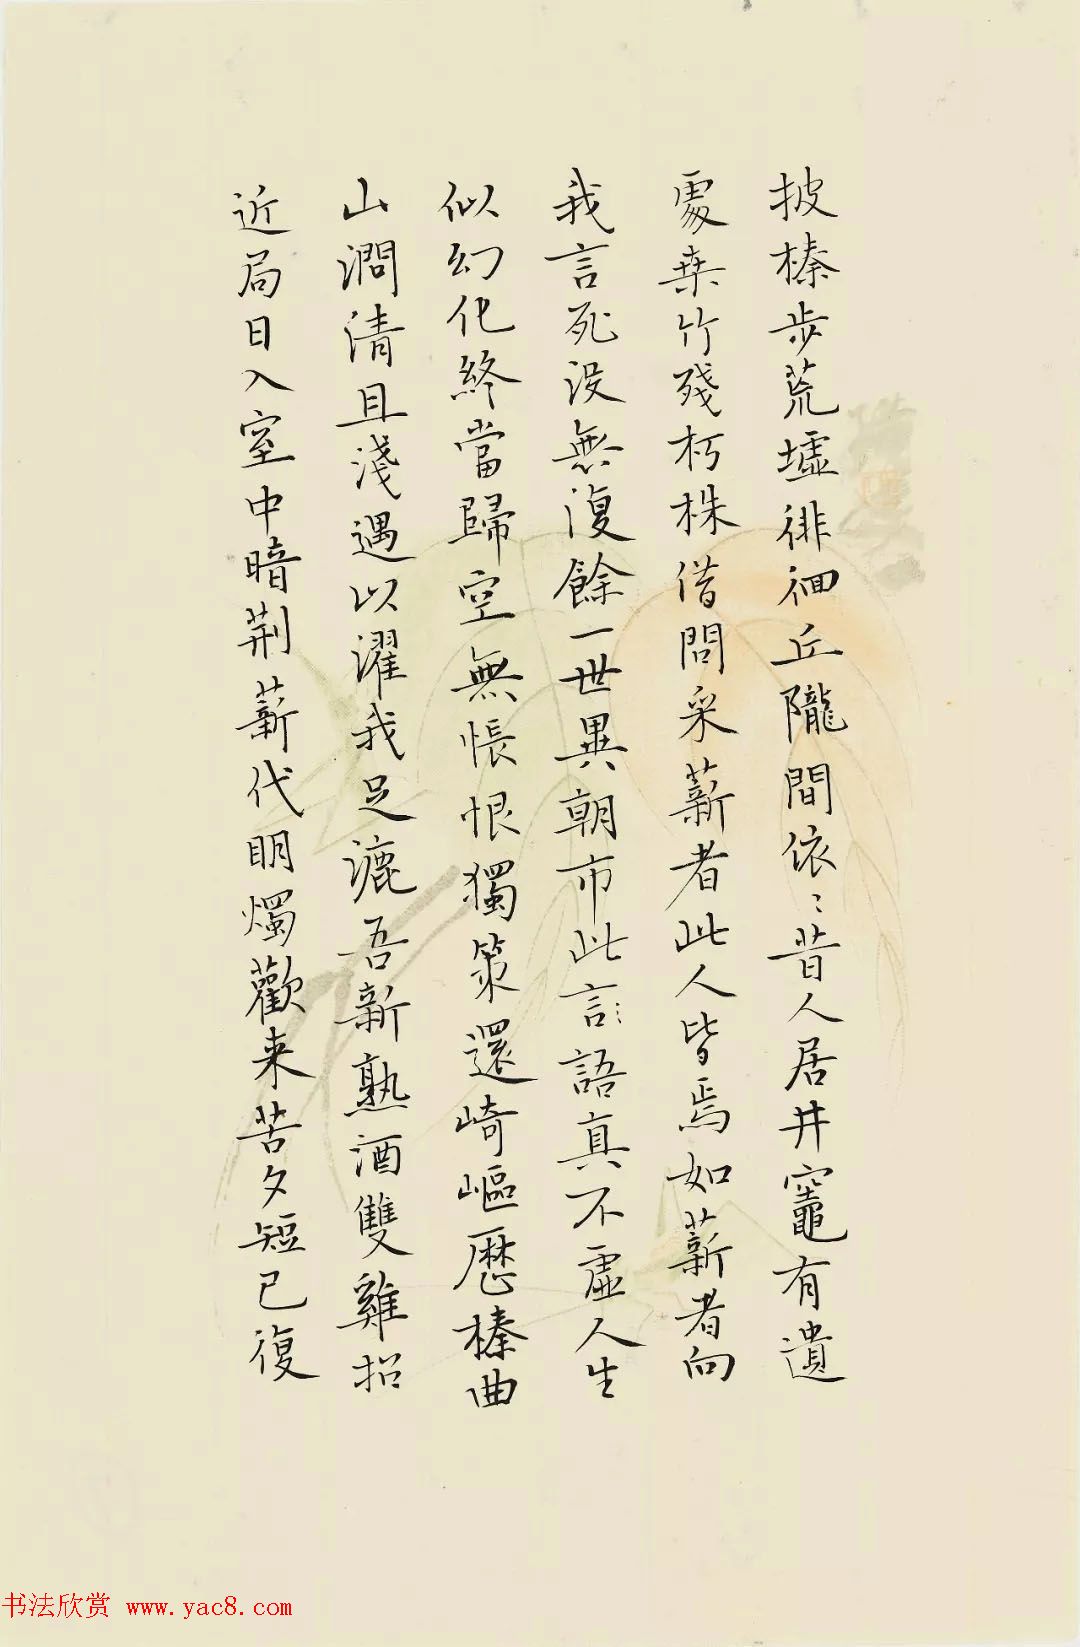 披榛步荒墟徘徊丘隴間依〻昔人居井竈有遺
處桒竹殘朽株借問采薪者此人皆焉如薪者向
我言死沒無復餘一世異朝市此言〻語真不虛人生
似幻化終當歸空無悵恨獨策還崎嶇歷榛曲
山澗清且淺遇以濯我足漉吾新熟酒雙雞招
近局日入室中暗荆薪代明燭歡来苦夕短已復
书法欣赏 www.yac8.com